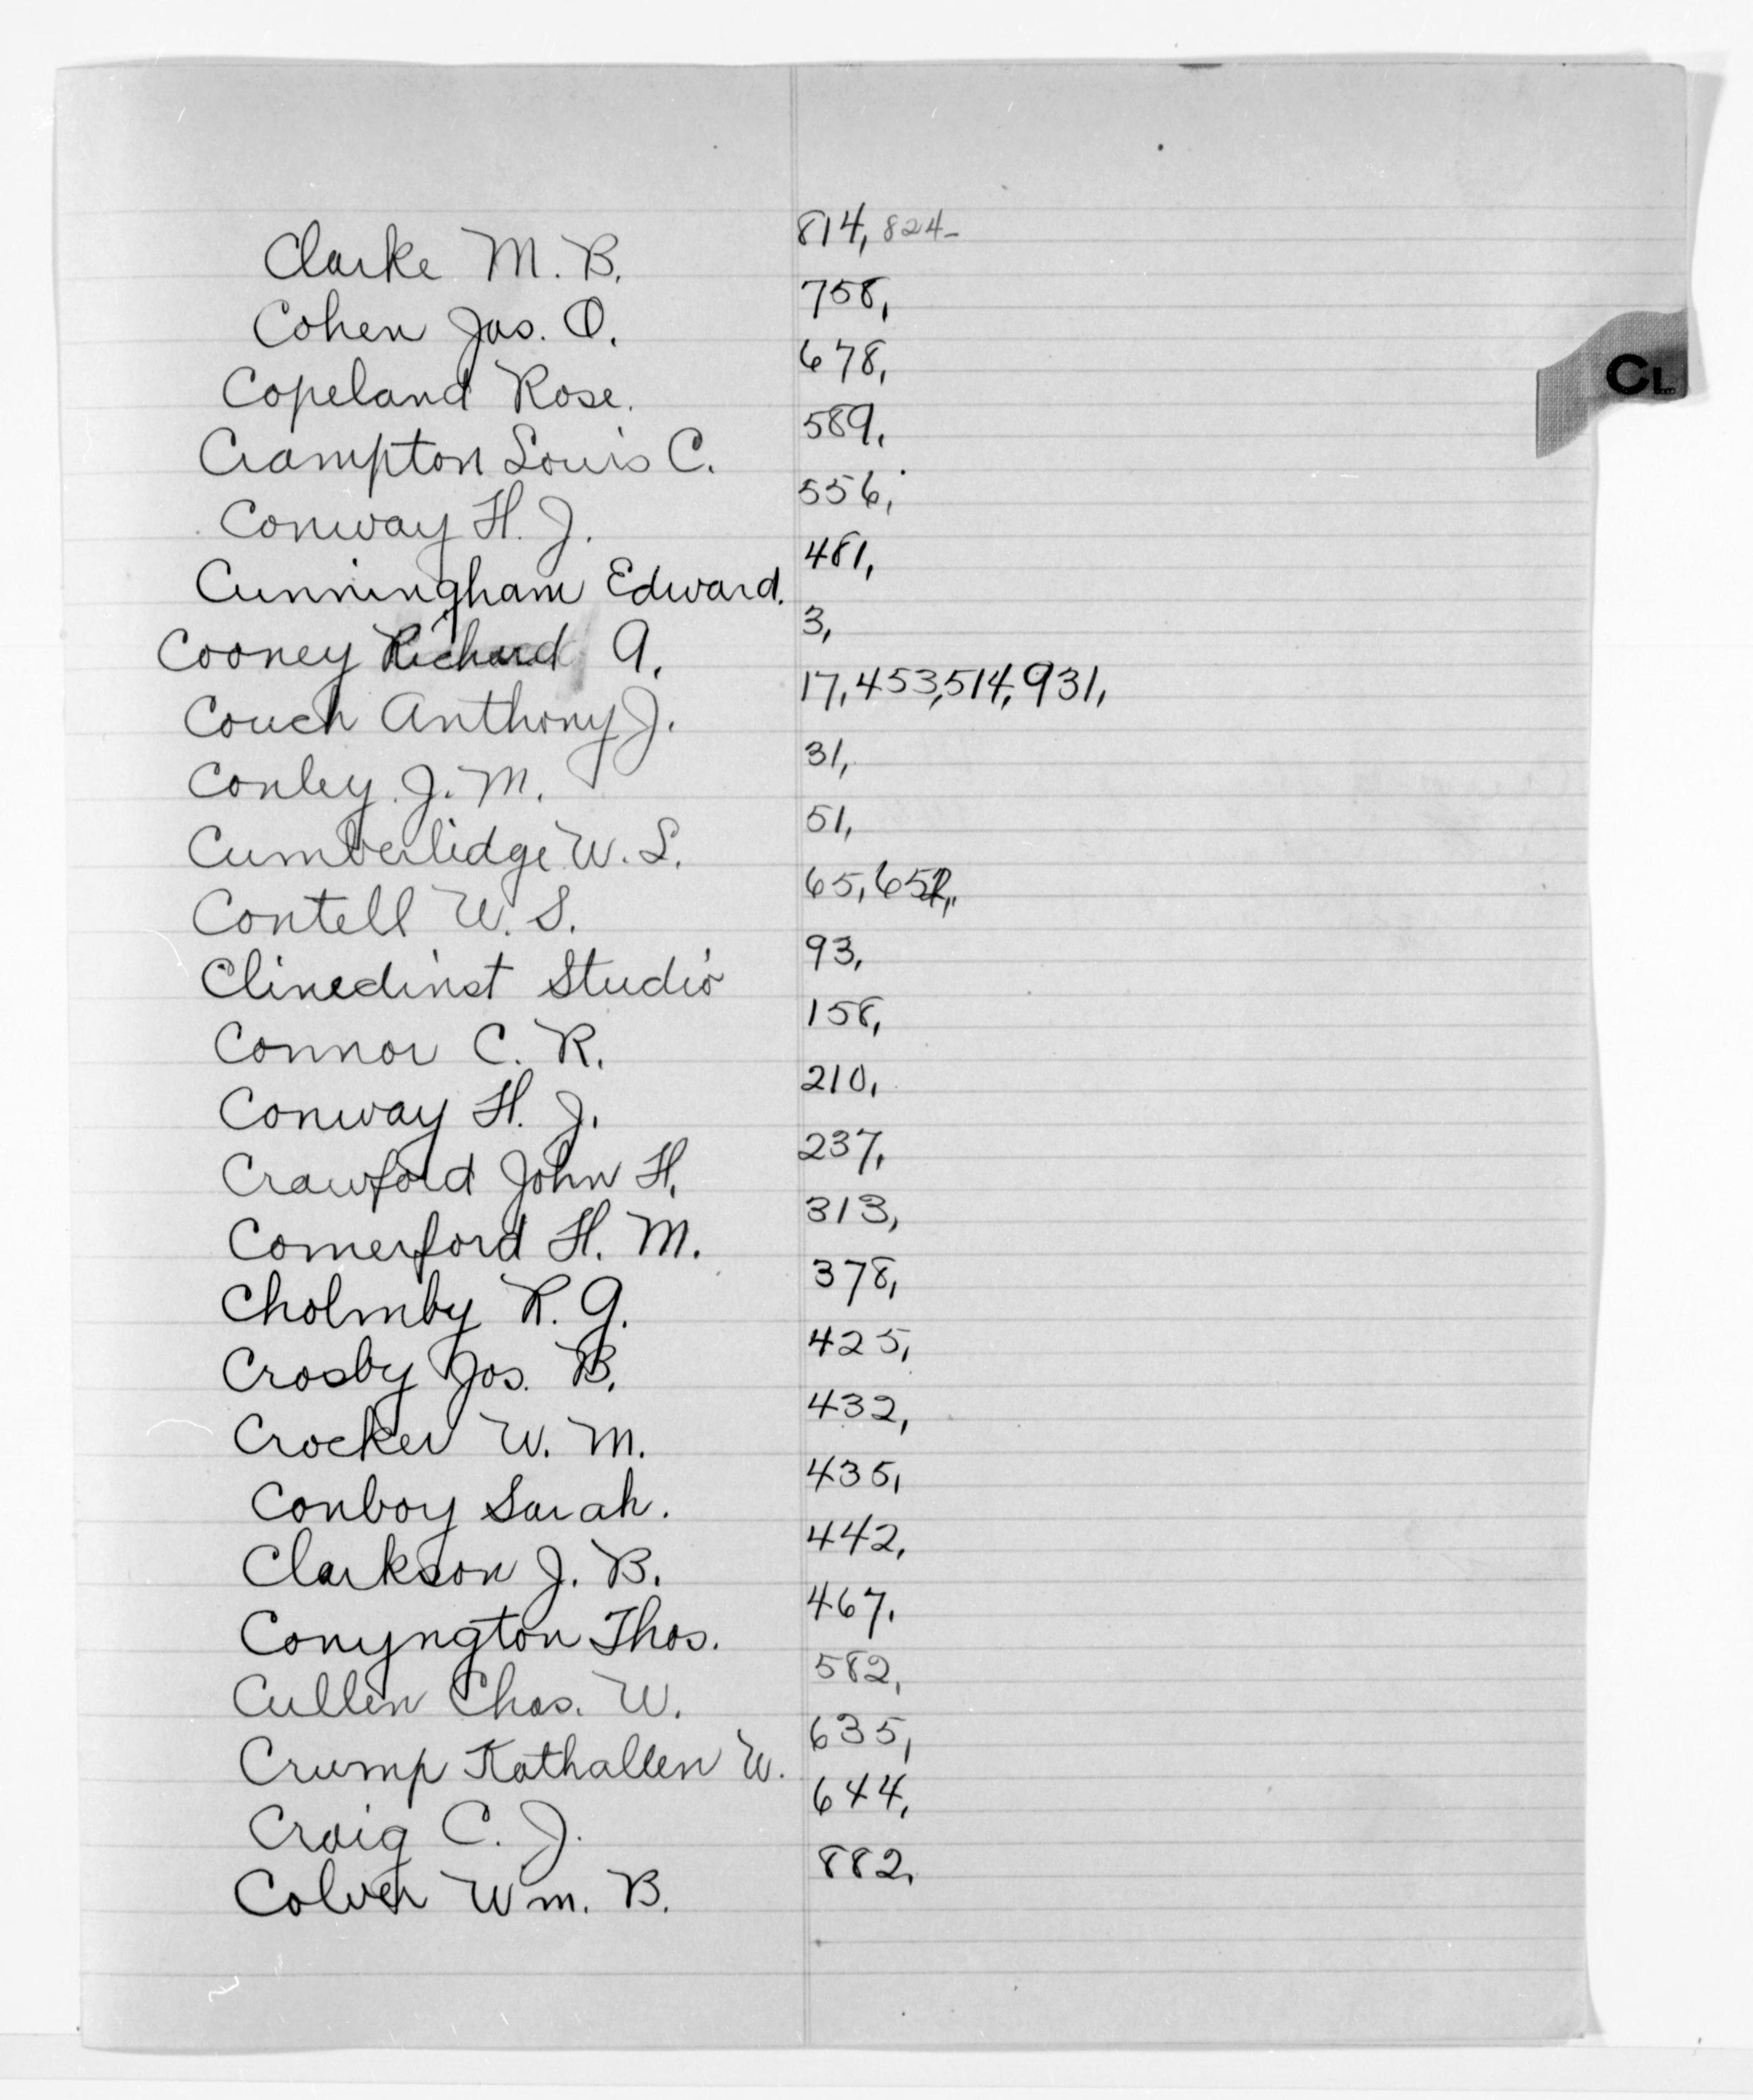 Clarke M. B. 814, 824-
Cohen Jas. O. 758,
Copeland Rose. 678,
Crampton Louis C. 589,
Conway H. J. 556,
Cunningham Edward. 481,
Cooney Richard A. 3,
Couch Anthony J. 17, 453, 514, 931,
Conley J. M. 31,
Cumberlidge W. S. 51,
Contell W. S. 65,
Clinedinst Studio 93,
Connor C. R. 158,
Conway H. J. 210,
Crawford John H. 237,
Comerford H. M. 313,
Cholmby R. G. 378,
Crosby Jos. B. 425,
Crocker W. M. 432,
Conboy Sarah. 435,
Clarkson J. B. 442,
Conyngton Thos. 467,
Cullen Chas. W. 582,
Crump Kathallen W. 635,
Craig C. J. 644,
Colver Wm. B. 882,
CL